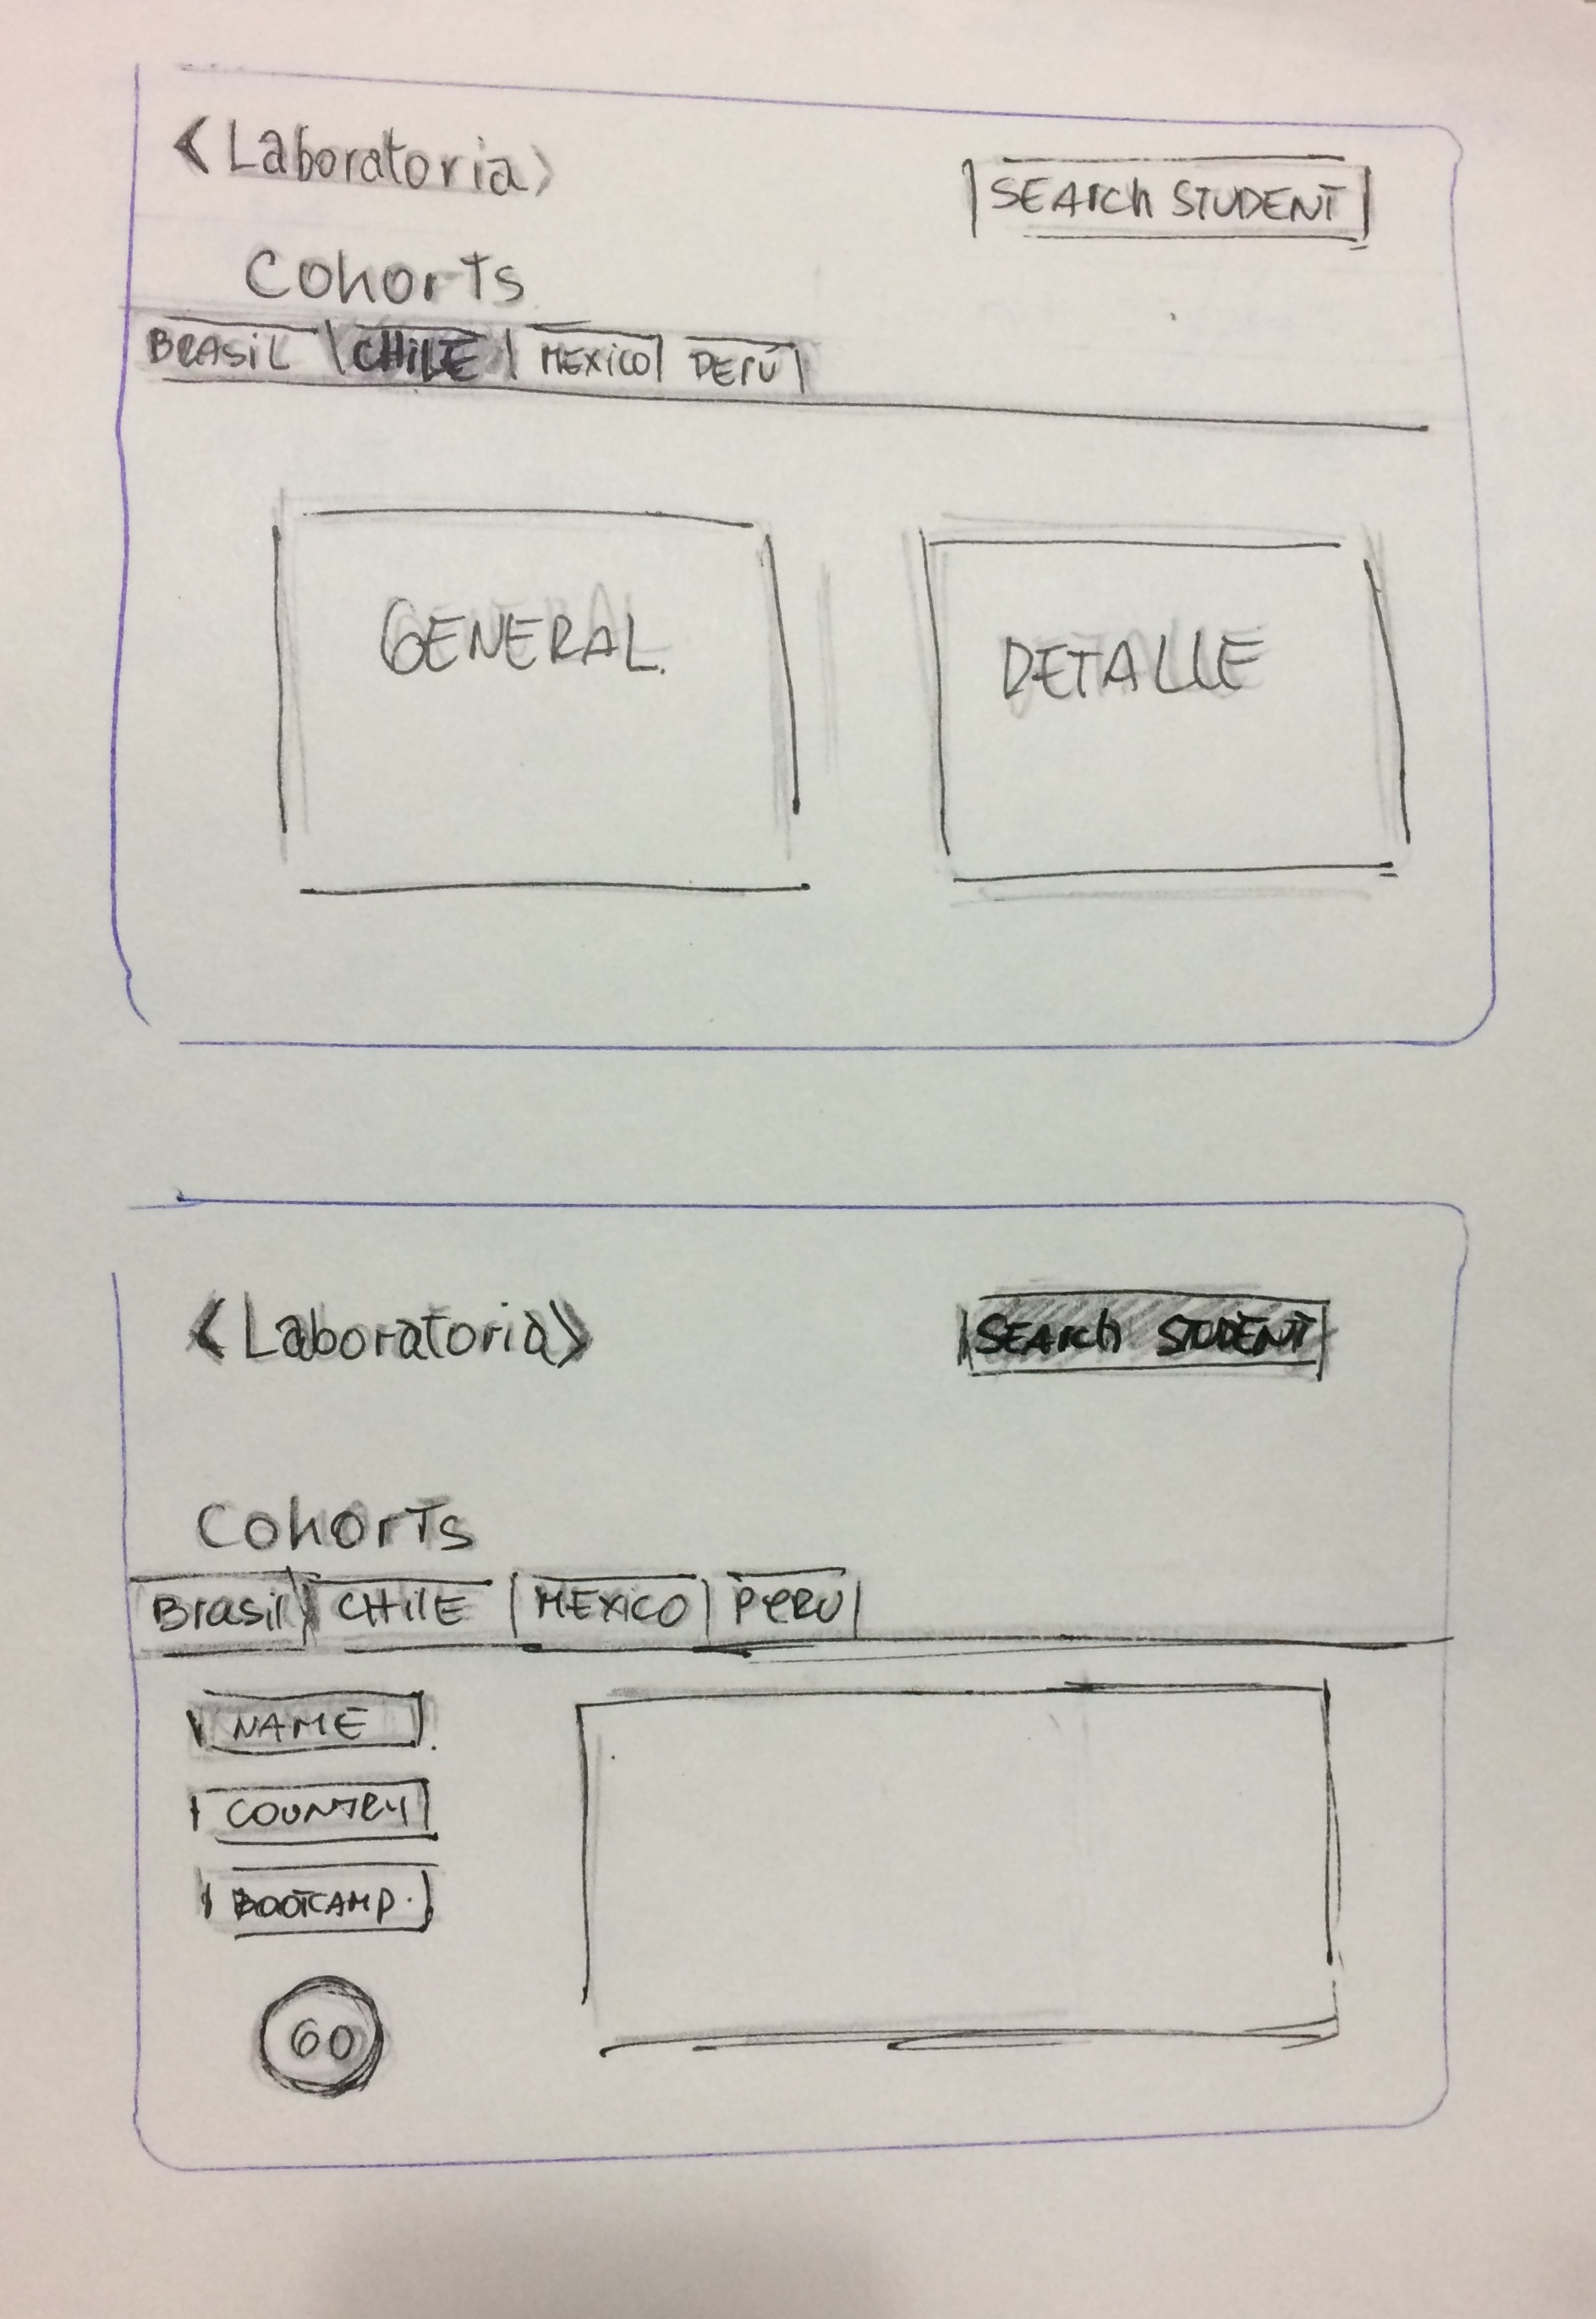 <Laboratoria>
SEARCH STUDENT
Cohorts
BRASIL CHILE MEXICO PERÚ
GENERAL.
DETALLE
<Laboratoria>
SEARCH STUDENT
Cohorts
Brasil CHILE MEXICO PERU
NAME
COUNTRY
BOOTCAMP.
GO